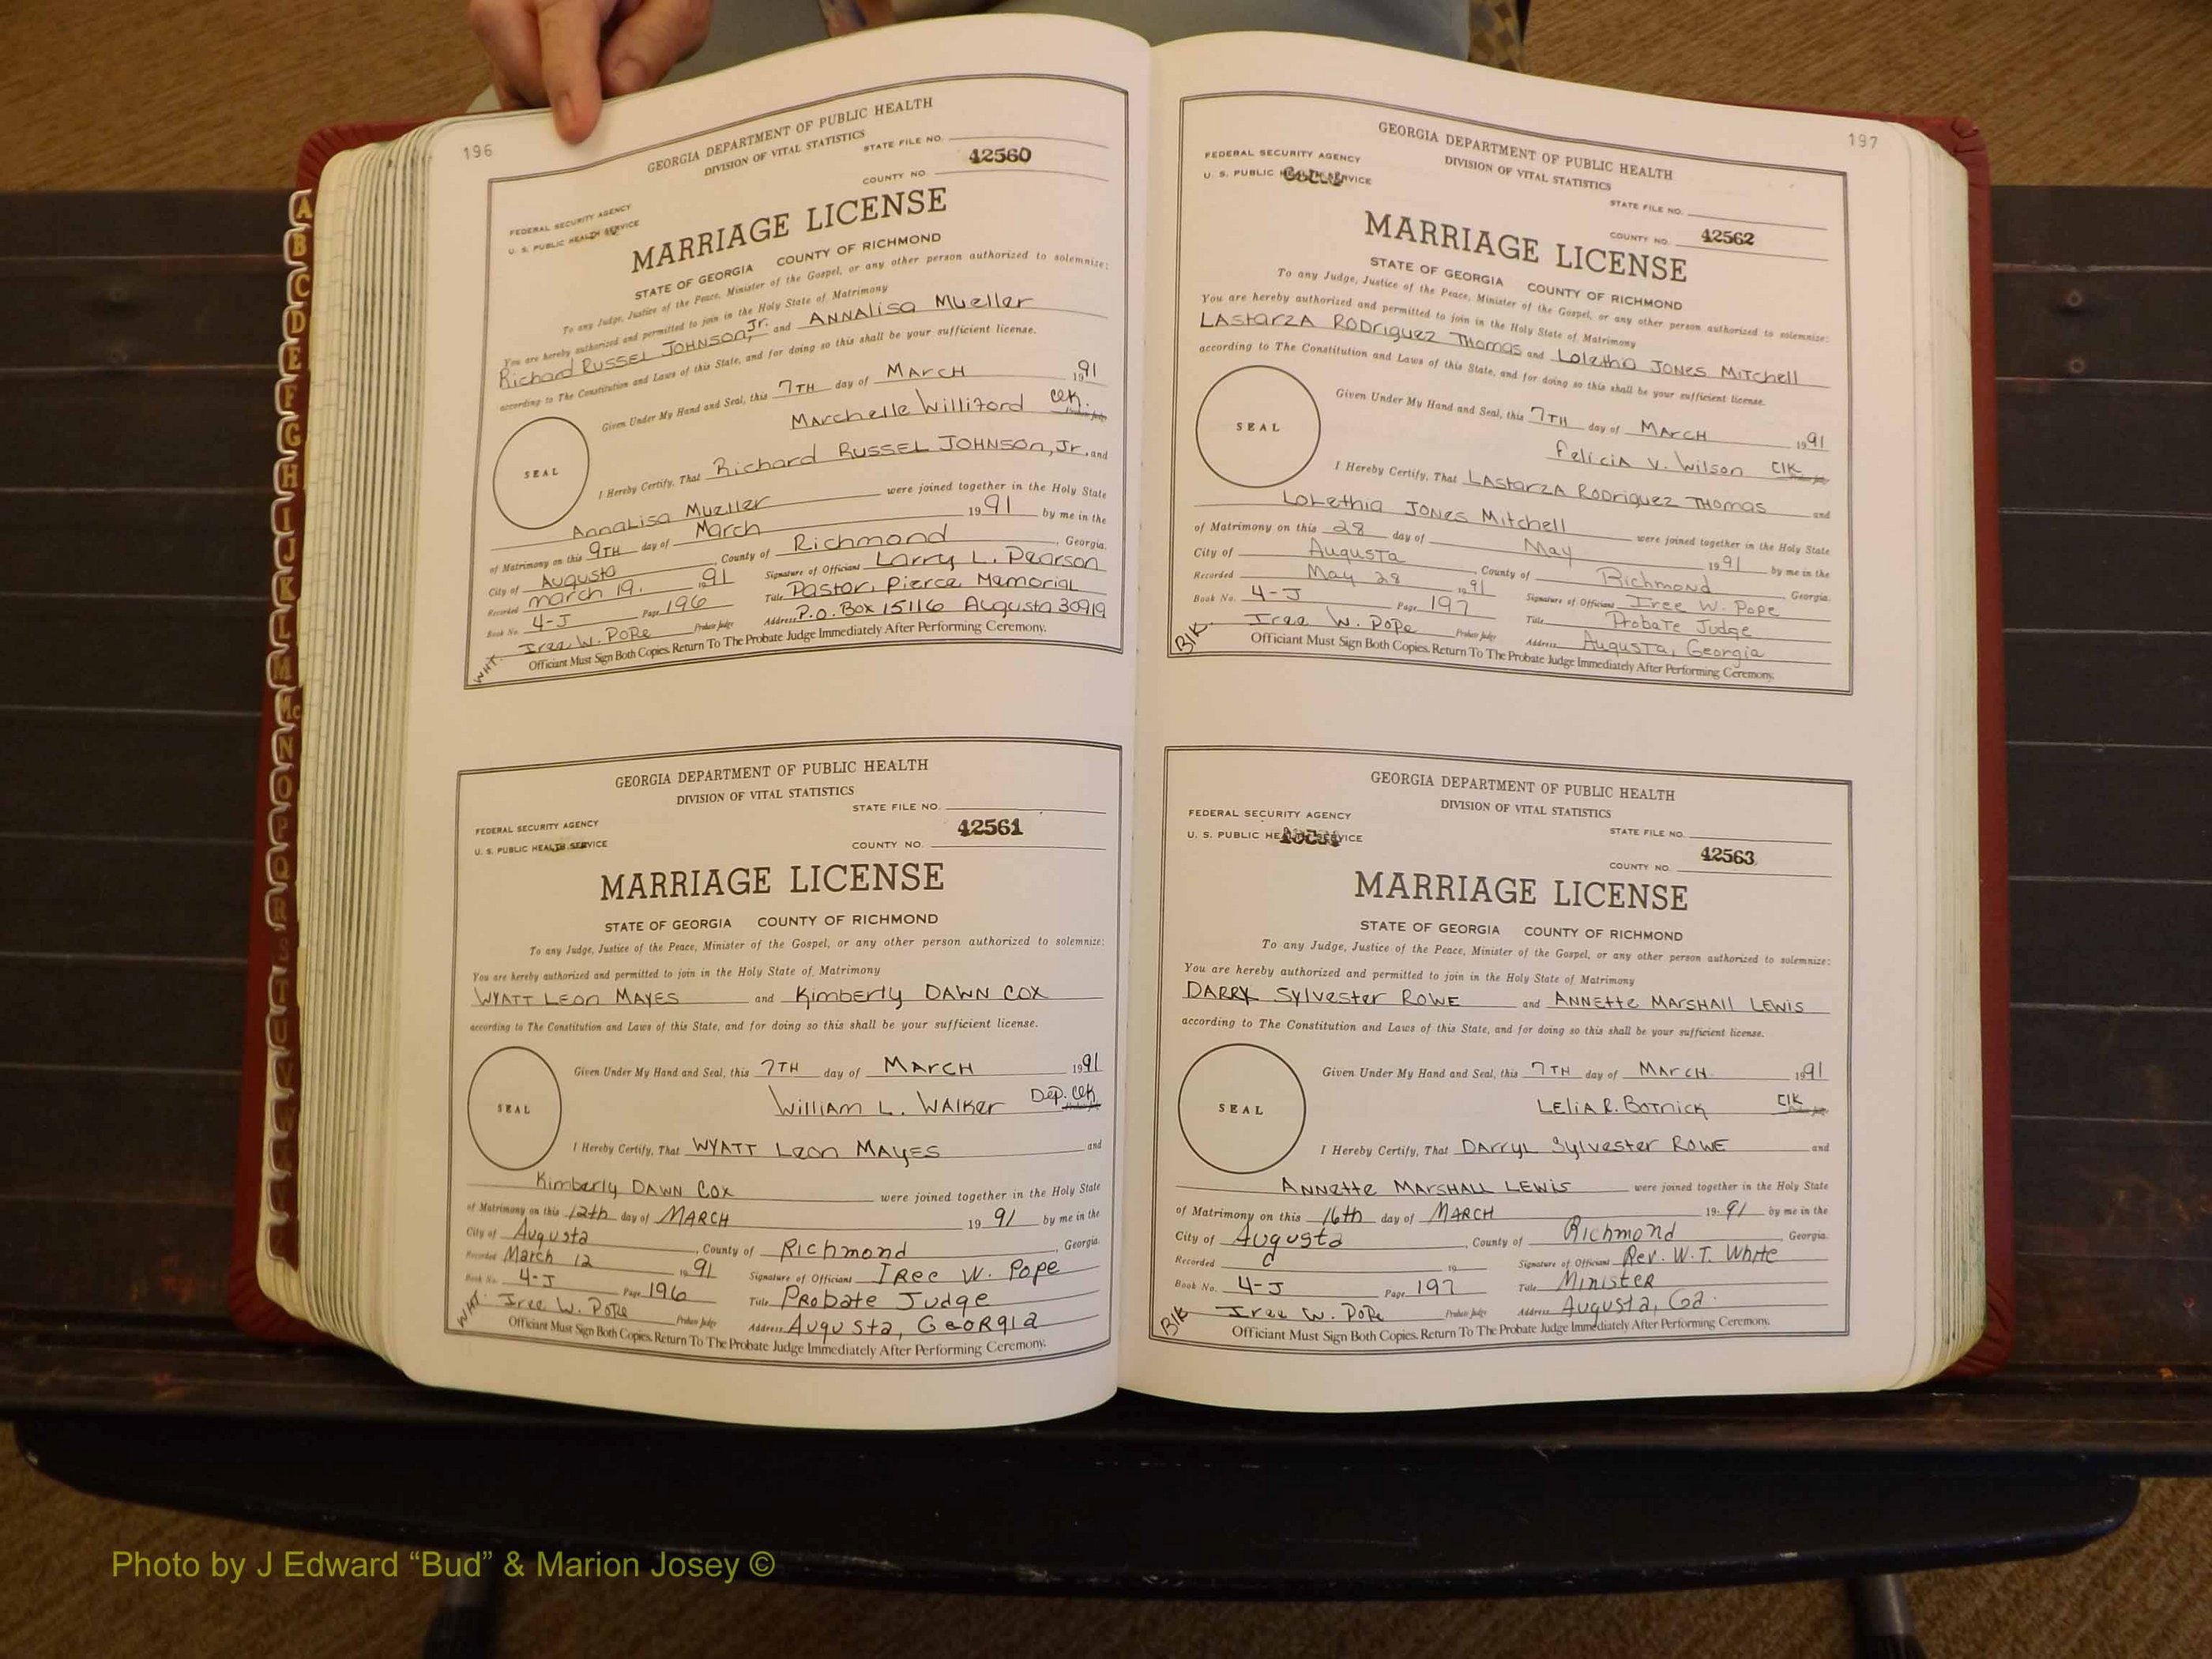 196
GEORGIA DEPARTMENT OF PUBLIC HEALTH
DIVISION OF VITAL STATISTICS
STATE FILE NO.
42560
COUNTY NO.
FEDERAL SECURITY AGENCY
U. S. PUBLIC HEALTH SERVICE
MARRIAGE LICENSE
STATE OF GEORGIA COUNTY OF RICHMOND
To any Judge, Justice of the Peace, Minister of the Gospel, or any other person authorized to solemnize:
You are hereby authorized and permitted to join in the Holy State of Matrimony
Richard RUSSEL JOHNSON, Jr. and ANNALISA MUELLER
according to The Constitution and Laws of this State, and for doing so this shall be your sufficient license.
Given Under My Hand and Seal, this 7TH day of MARCH 1991
Marchelle Williford Clk.
SEAL
I Hereby Certify, That Richard RUSSEL JOHNSON, Jr. and
AnnaLisa Mueller were joined together in the Holy State
of Matrimony on this 9TH day of March 1991 by me in the
City of Augusta, County of Richmond, Georgia.
Recorded march 19, 1991 Signature of Officiant Larry L. Pearson
Book No. 4-J Page 196 Title Pastor, Pierce Memorial
Iree W. Pope Probate Judge Address P.O. Box 15116 Augusta 30919
WHT. Officiant Must Sign Both Copies. Return To The Probate Judge Immediately After Performing Ceremony.
GEORGIA DEPARTMENT OF PUBLIC HEALTH
DIVISION OF VITAL STATISTICS
STATE FILE NO.
42561
FEDERAL SECURITY AGENCY
U. S. PUBLIC HEALTH SERVICE
COUNTY NO.
MARRIAGE LICENSE
STATE OF GEORGIA COUNTY OF RICHMOND
To any Judge, Justice of the Peace, Minister of the Gospel, or any other person authorized to solemnize:
You are hereby authorized and permitted to join in the Holy State of Matrimony
WYATT Leon MAYES and Kimberly DAWN COX
according to The Constitution and Laws of this State, and for doing so this shall be your sufficient license.
Given Under My Hand and Seal, this 7TH day of MARCH 1991
William L. WALKER Dep. Clk
SEAL
I Hereby Certify, That WYATT Leon MAYES and
Kimberly DAWN Cox were joined together in the Holy State
of Matrimony on this 12th day of MARCH 1991 by me in the
City of Augusta, County of Richmond, Georgia.
Recorded March 12 1991 Signature of Officiant IRee W. Pope
Book No. 4-J Page 196 Title Probate Judge
Iree W. Pope Probate Judge Address Augusta, GeoRgia
WHT. Officiant Must Sign Both Copies. Return To The Probate Judge Immediately After Performing Ceremony.
197
GEORGIA DEPARTMENT OF PUBLIC HEALTH
DIVISION OF VITAL STATISTICS
FEDERAL SECURITY AGENCY
U. S. PUBLIC HEALTH SERVICE
STATE FILE NO.
COUNTY NO. 42562
MARRIAGE LICENSE
STATE OF GEORGIA COUNTY OF RICHMOND
To any Judge, Justice of the Peace, Minister of the Gospel, or any other person authorized to solemnize:
You are hereby authorized and permitted to join in the Holy State of Matrimony
LAstarzA RODriguez Thomas and Lolethia JONES MITchell
according to The Constitution and Laws of this State, and for doing so this shall be your sufficient license.
Given Under My Hand and Seal, this 7TH day of MARCH 1991
Felicia V. Wilson Clk
SEAL
I Hereby Certify, That LAstarzA RODriguez THomas and
LoLethia JONes Mitchell were joined together in the Holy State
of Matrimony on this 28 day of May 1991 by me in the
City of Augusta, County of Richmond, Georgia.
Recorded May 28 1991 Signature of Officiant Iree W. Pope
Book No. 4-J Page 197 Title Probate Judge
Iree W. Pope Probate Judge Address Augusta, Georgia
Blk. Officiant Must Sign Both Copies. Return To The Probate Judge Immediately After Performing Ceremony.
GEORGIA DEPARTMENT OF PUBLIC HEALTH
DIVISION OF VITAL STATISTICS
FEDERAL SECURITY AGENCY
U. S. PUBLIC HEALTH SERVICE
STATE FILE NO.
42563
COUNTY NO.
MARRIAGE LICENSE
STATE OF GEORGIA COUNTY OF RICHMOND
To any Judge, Justice of the Peace, Minister of the Gospel, or any other person authorized to solemnize:
You are hereby authorized and permitted to join in the Holy State of Matrimony
Sylvester ROWE and ANNEtte MARSHAll LEWIS
according to The Constitution and Laws of this State, and for doing so this shall be your sufficient license.
Given Under My Hand and Seal, this 7TH day of MARCH 1991
LEliA R. BOTnick Clk
SEAL
I Hereby Certify, That DArryL Sylvester ROWE and
ANNette MARSHALL LEWIS were joined together in the Holy State
of Matrimony on this 16th day of MARCH 1991 by me in the
City of Augusta, County of Richmond Georgia.
Recorded 19 Signature of Officiant Rev. W. T. White
Book No. 4-J Page 197 Title Minister
Iree W. Pope Probate Judge Address Augusta, Ga.
Blk Officiant Must Sign Both Copies. Return To The Probate Judge Immediately After Performing Ceremony.
A
B
C
D
E
F
G
H
I
J
K
L
M
Mc
N
O
P
Q
R
S
T
U
V
W
Photo by J Edward “Bud” & Marion Josey ©